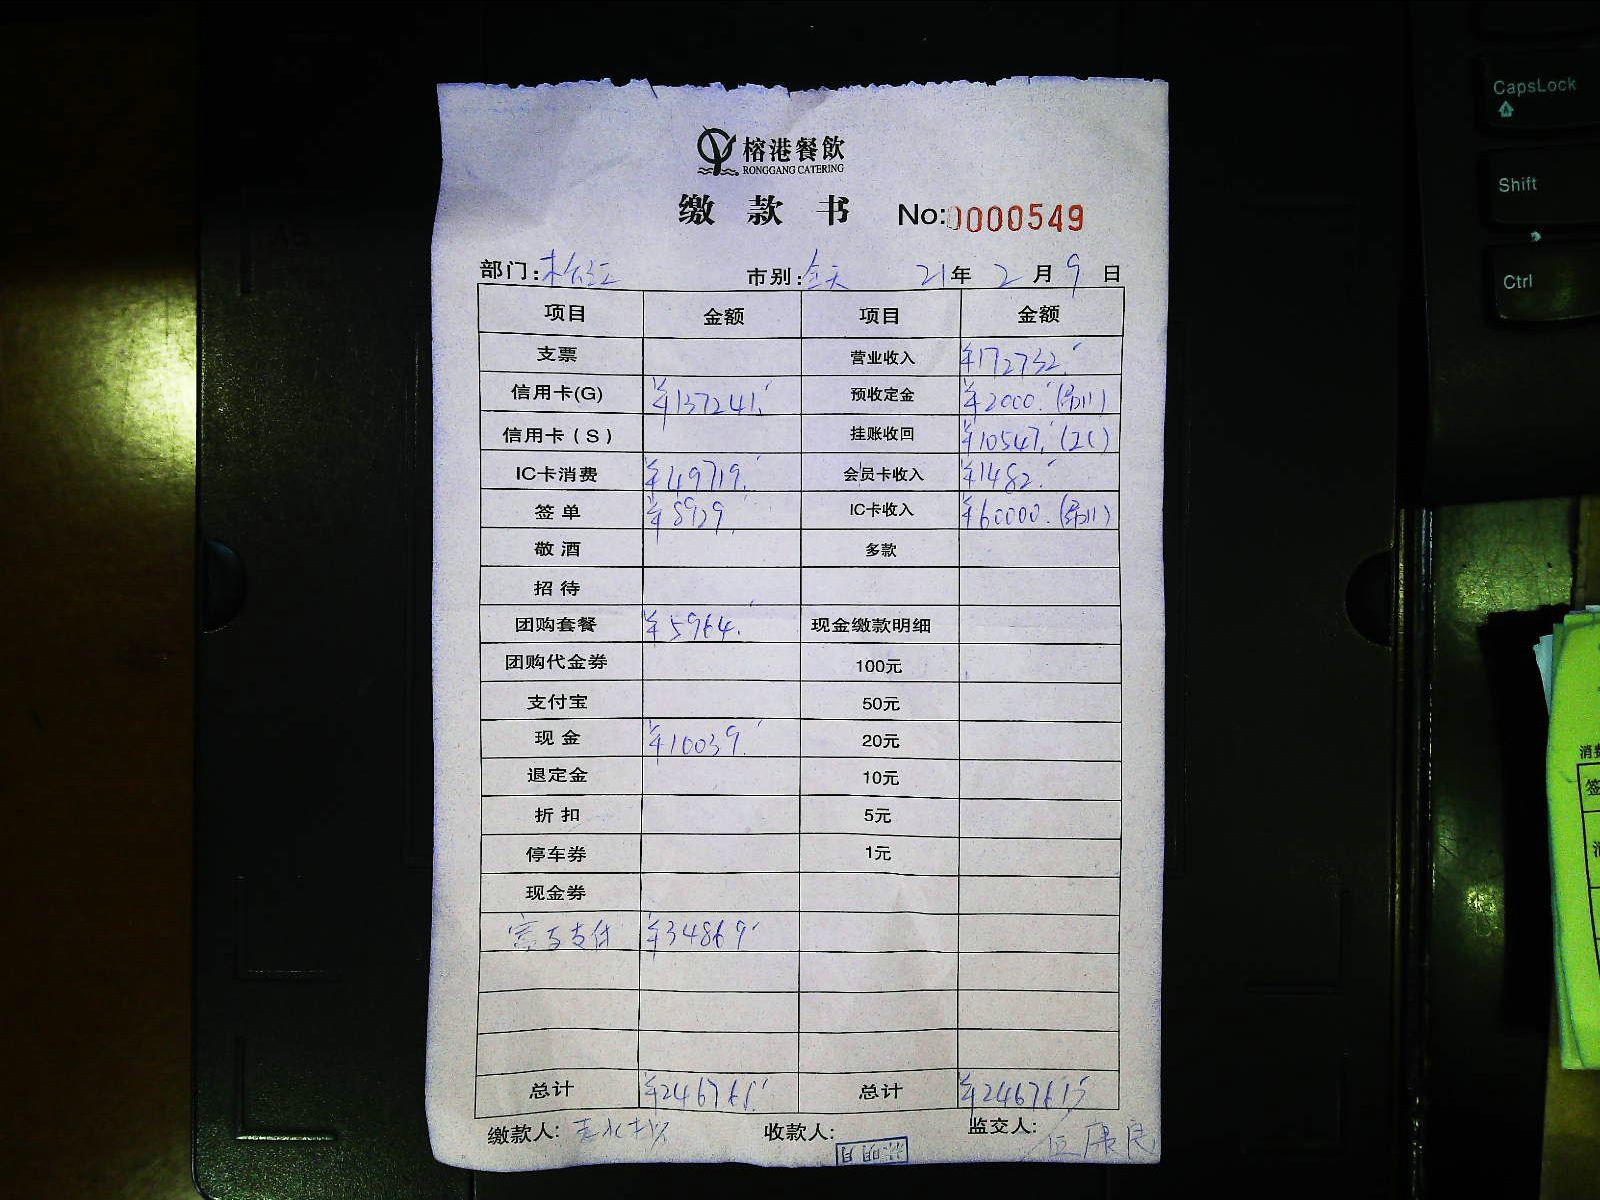 榕港餐飲
RONGGANG CATERING
缴款书 No:0000549
部门:松江 市别:全天 21年2月9日
项目 金额 项目 金额
支票 营业收入 ¥172732.
信用卡(G) ¥137241. 预收定金 ¥2000.
信用卡(S) 挂账收回 ¥10547.
IC卡消费 ¥49719. 会员卡收入 ¥1482.
签单 ¥8929. IC卡收入 ¥60000.
敬酒 多款
招待
团购套餐 ¥5964. 现金缴款明细
团购代金券 100元
支付宝 50元
现金 ¥10039. 20元
退定金 10元
折扣 5元
停车券 1元
现金券
支付 ¥34869
总计 ¥246761. 总计 ¥246761
缴款人: 收款人: 监交人:
CapsLock
Shift
Ctrl